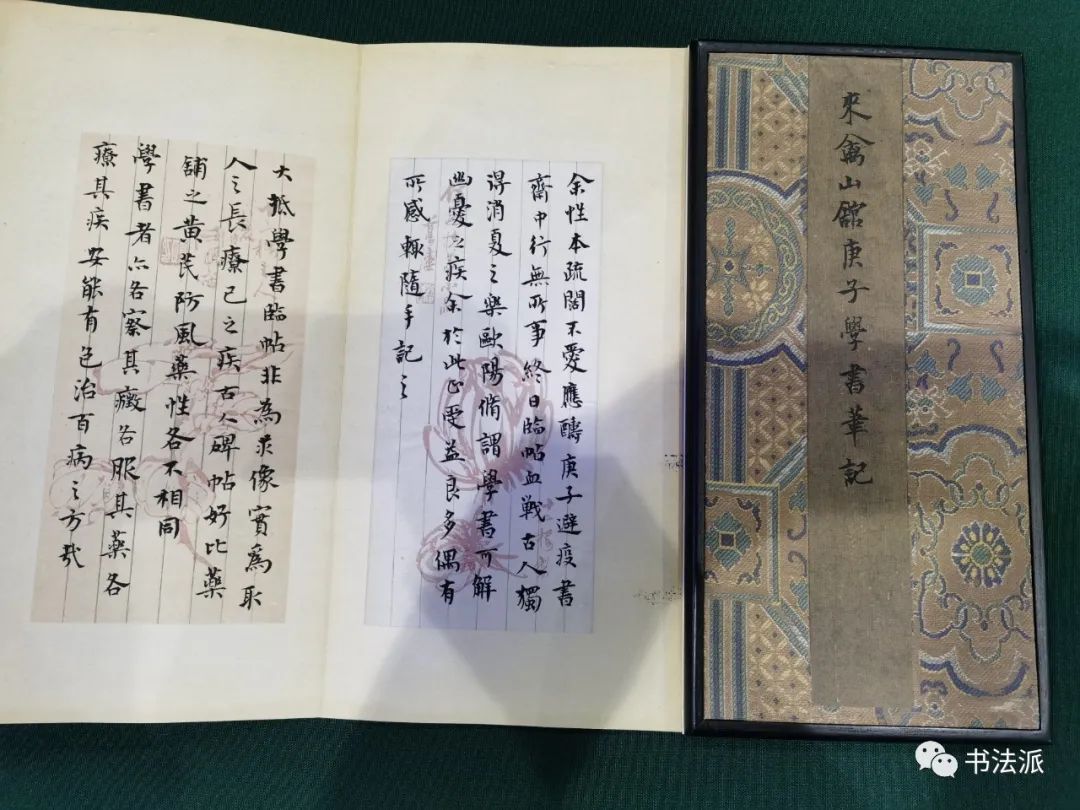 來禽山館庚子學書筆記
余性本疏闊不愛應酬庚子避疫書
齋中行無所事終日臨帖血戰古人獨
得消夏之樂歐陽脩謂學書可解
幽憂之疾余於此正受益良多偶有
所感輒隨手記之
大抵學書臨帖非為求像實為取
人之長療己之疾古人碑帖好比藥
舖之黃芪防風藥性各不相同
學書者亦各察其癥各服其藥各
療其疾安能有包治百病之方哉
书法派